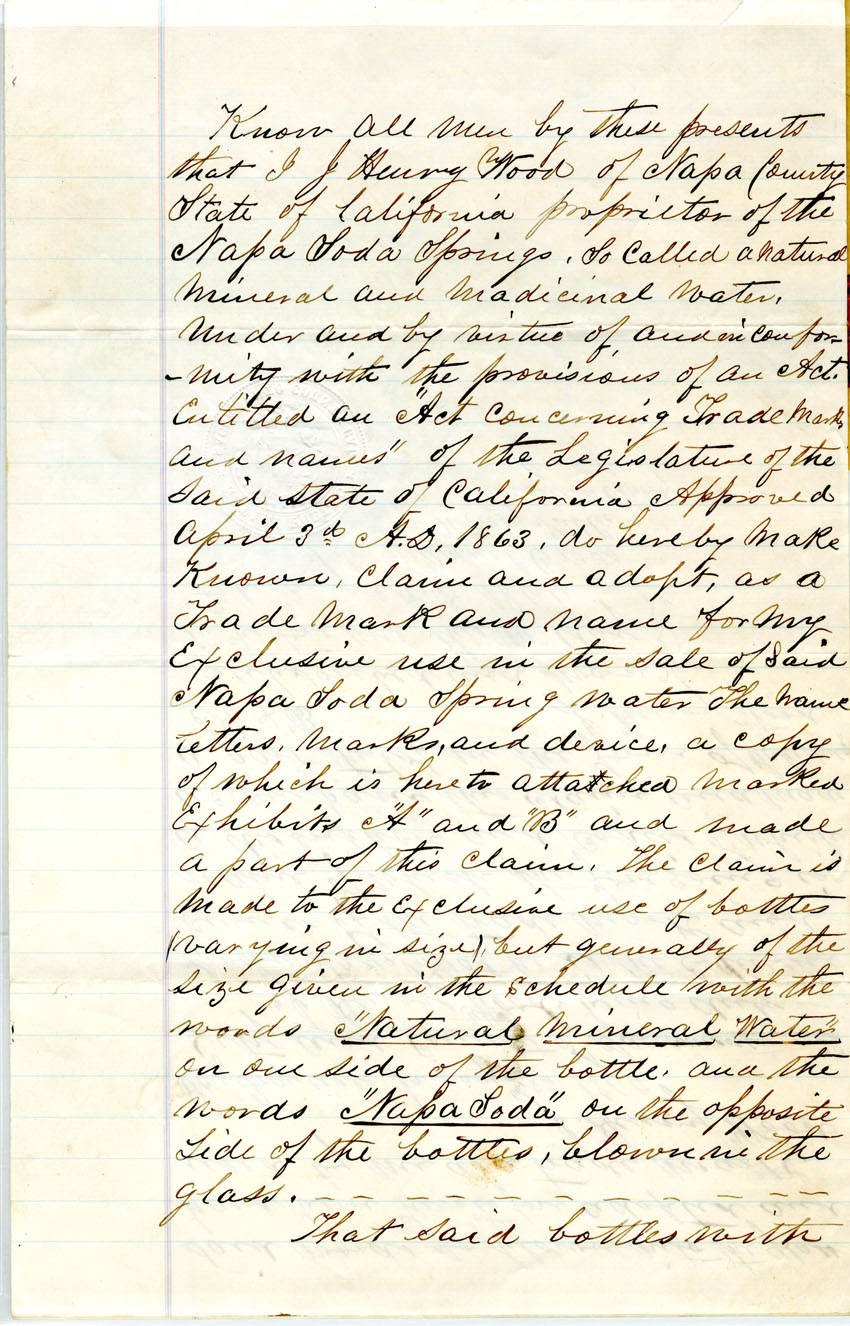 Know all men by these presents
that I J Henry Wood of Napa County
State of California proprietor of the
Napa Soda Springs, So Called a natural
Mineral and Madicinal Water.
Under and by virtue of and in confor-
-mity with the provisions of an Act.
Entitled an "Act Concerning Trade Marks
and names" of the Legislature of the
said State of California Approved
April 3d A.D, 1863, do hereby Make
Known, Claim and adopt, as a
Trade Mark and name for my
Exclusive use in the sale of said
Napa Soda Spring water The Name
Letters, Marks, and device, a copy
of which is hereto attatched Marked
Exhibits "A" and "B" and made
a part of this Claim. The Claim is
Made to the Exclusive use of bottles
(varying in size), but generally of the
size given in the schedule with the
words "Natural Mineral Water"
on one side of the bottle. and the
words "Napa Soda" on the opposite
Side of the bottles, blown in the
glass. — — — — — — — — — — — —
That said bottles with